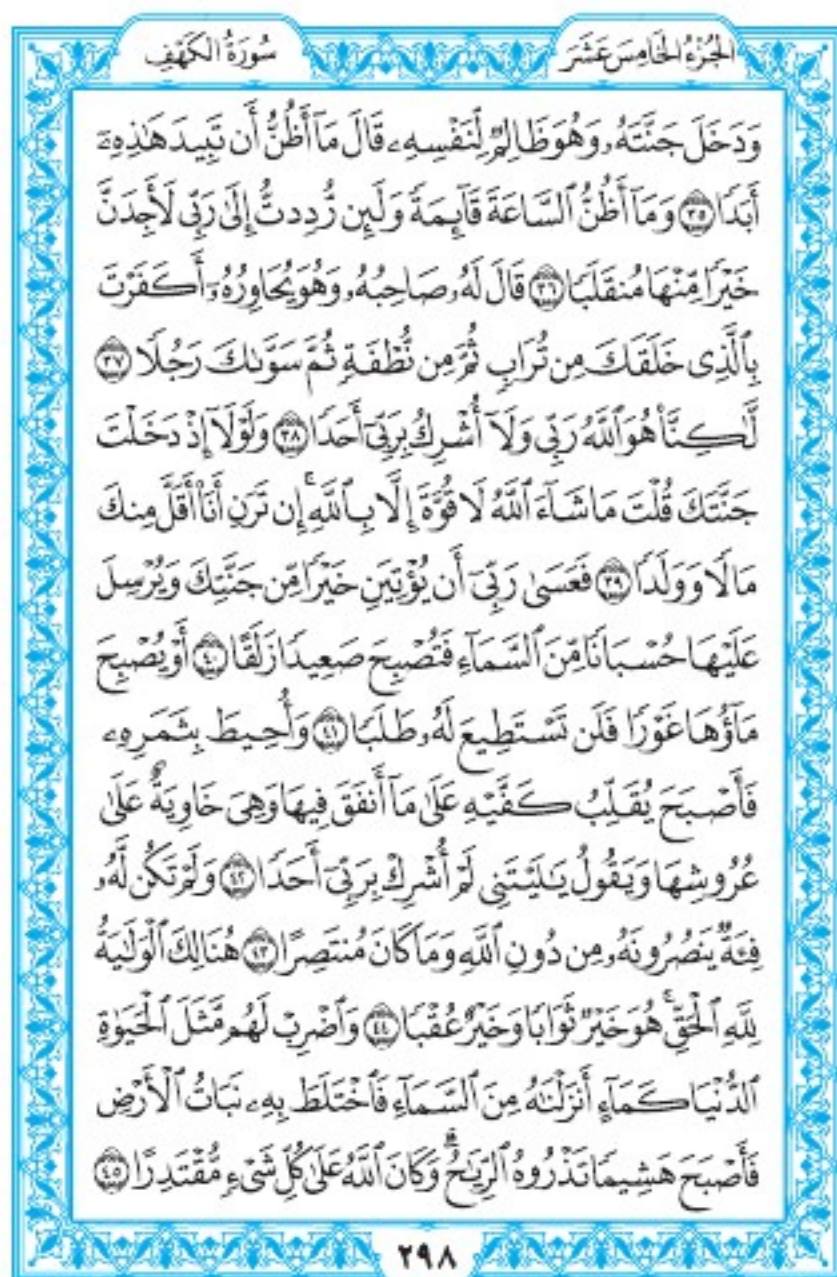 الجُزْءُ الخَامِسَ عَشَرَ
سُورَةُ الكَهْفِ
وَدَخَلَ جَنَّتَهُۥ وَهُوَ ظَالِمٌ لِّنَفْسِهِۦ قَالَ مَآ أَظُنُّ أَن تَبِيدَ هَٰذِهِۦٓ
أَبَدٗا ٣٥ وَمَآ أَظُنُّ ٱلسَّاعَةَ قَآئِمَةٗ وَلَئِن رُّدِدتُّ إِلَىٰ رَبِّي لَأَجِدَنَّ
خَيۡرٗا مِّنۡهَا مُنقَلَبٗا ٣٦ قَالَ لَهُۥ صَاحِبُهُۥ وَهُوَ يُحَاوِرُهُۥٓ أَكَفَرۡتَ
بِٱلَّذِي خَلَقَكَ مِن تُرَابٖ ثُمَّ مِن نُّطۡفَةٖ ثُمَّ سَوَّىٰكَ رَجُلٗا ٣٧
لَّٰكِنَّا۠ هُوَ ٱللَّهُ رَبِّي وَلَآ أُشۡرِكُ بِرَبِّيٓ أَحَدٗا ٣٨ وَلَوۡلَآ إِذۡ دَخَلۡتَ
جَنَّتَكَ قُلۡتَ مَا شَآءَ ٱللَّهُ لَا قُوَّةَ إِلَّا بِٱللَّهِۚ إِن تَرَنِ أَنَا۠ أَقَلَّ مِنكَ
مَالٗا وَوَلَدٗا ٣٩ فَعَسَىٰ رَبِّيٓ أَن يُؤۡتِيَنِ خَيۡرٗا مِّن جَنَّتِكَ وَيُرۡسِلَ
عَلَيۡهَا حُسۡبَانٗا مِّنَ ٱلسَّمَآءِ فَتُصۡبِحَ صَعِيدٗا زَلَقًا ٤٠ أَوۡ يُصۡبِحَ
مَآؤُهَا غَوۡرٗا فَلَن تَسۡتَطِيعَ لَهُۥ طَلَبٗا ٤١ وَأُحِيطَ بِثَمَرِهِۦ
فَأَصۡبَحَ يُقَلِّبُ كَفَّيۡهِ عَلَىٰ مَآ أَنفَقَ فِيهَا وَهِيَ خَاوِيَةٌ عَلَىٰ
عُرُوشِهَا وَيَقُولُ يَٰلَيۡتَنِي لَمۡ أُشۡرِكۡ بِرَبِّيٓ أَحَدٗا ٤٢ وَلَمۡ تَكُن لَّهُۥ
فِئَةٞ يَنصُرُونَهُۥ مِن دُونِ ٱللَّهِ وَمَا كَانَ مُنتَصِرًا ٤٣ هُنَالِكَ ٱلۡوَلَٰيَةُ
لِلَّهِ ٱلۡحَقِّۚ هُوَ خَيۡرٞ ثَوَابٗا وَخَيۡرٌ عُقۡبٗا ٤٤ وَٱضۡرِبۡ لَهُم مَّثَلَ ٱلۡحَيَوٰةِ
ٱلدُّنۡيَا كَمَآءٍ أَنزَلۡنَٰهُ مِنَ ٱلسَّمَآءِ فَٱخۡتَلَطَ بِهِۦ نَبَاتُ ٱلۡأَرۡضِ
فَأَصۡبَحَ هَشِيمٗا تَذۡرُوهُ ٱلرِّيَٰحُۗ وَكَانَ ٱللَّهُ عَلَىٰ كُلِّ شَيۡءٖ مُّقۡتَدِرًا ٤٥
٢٩٨